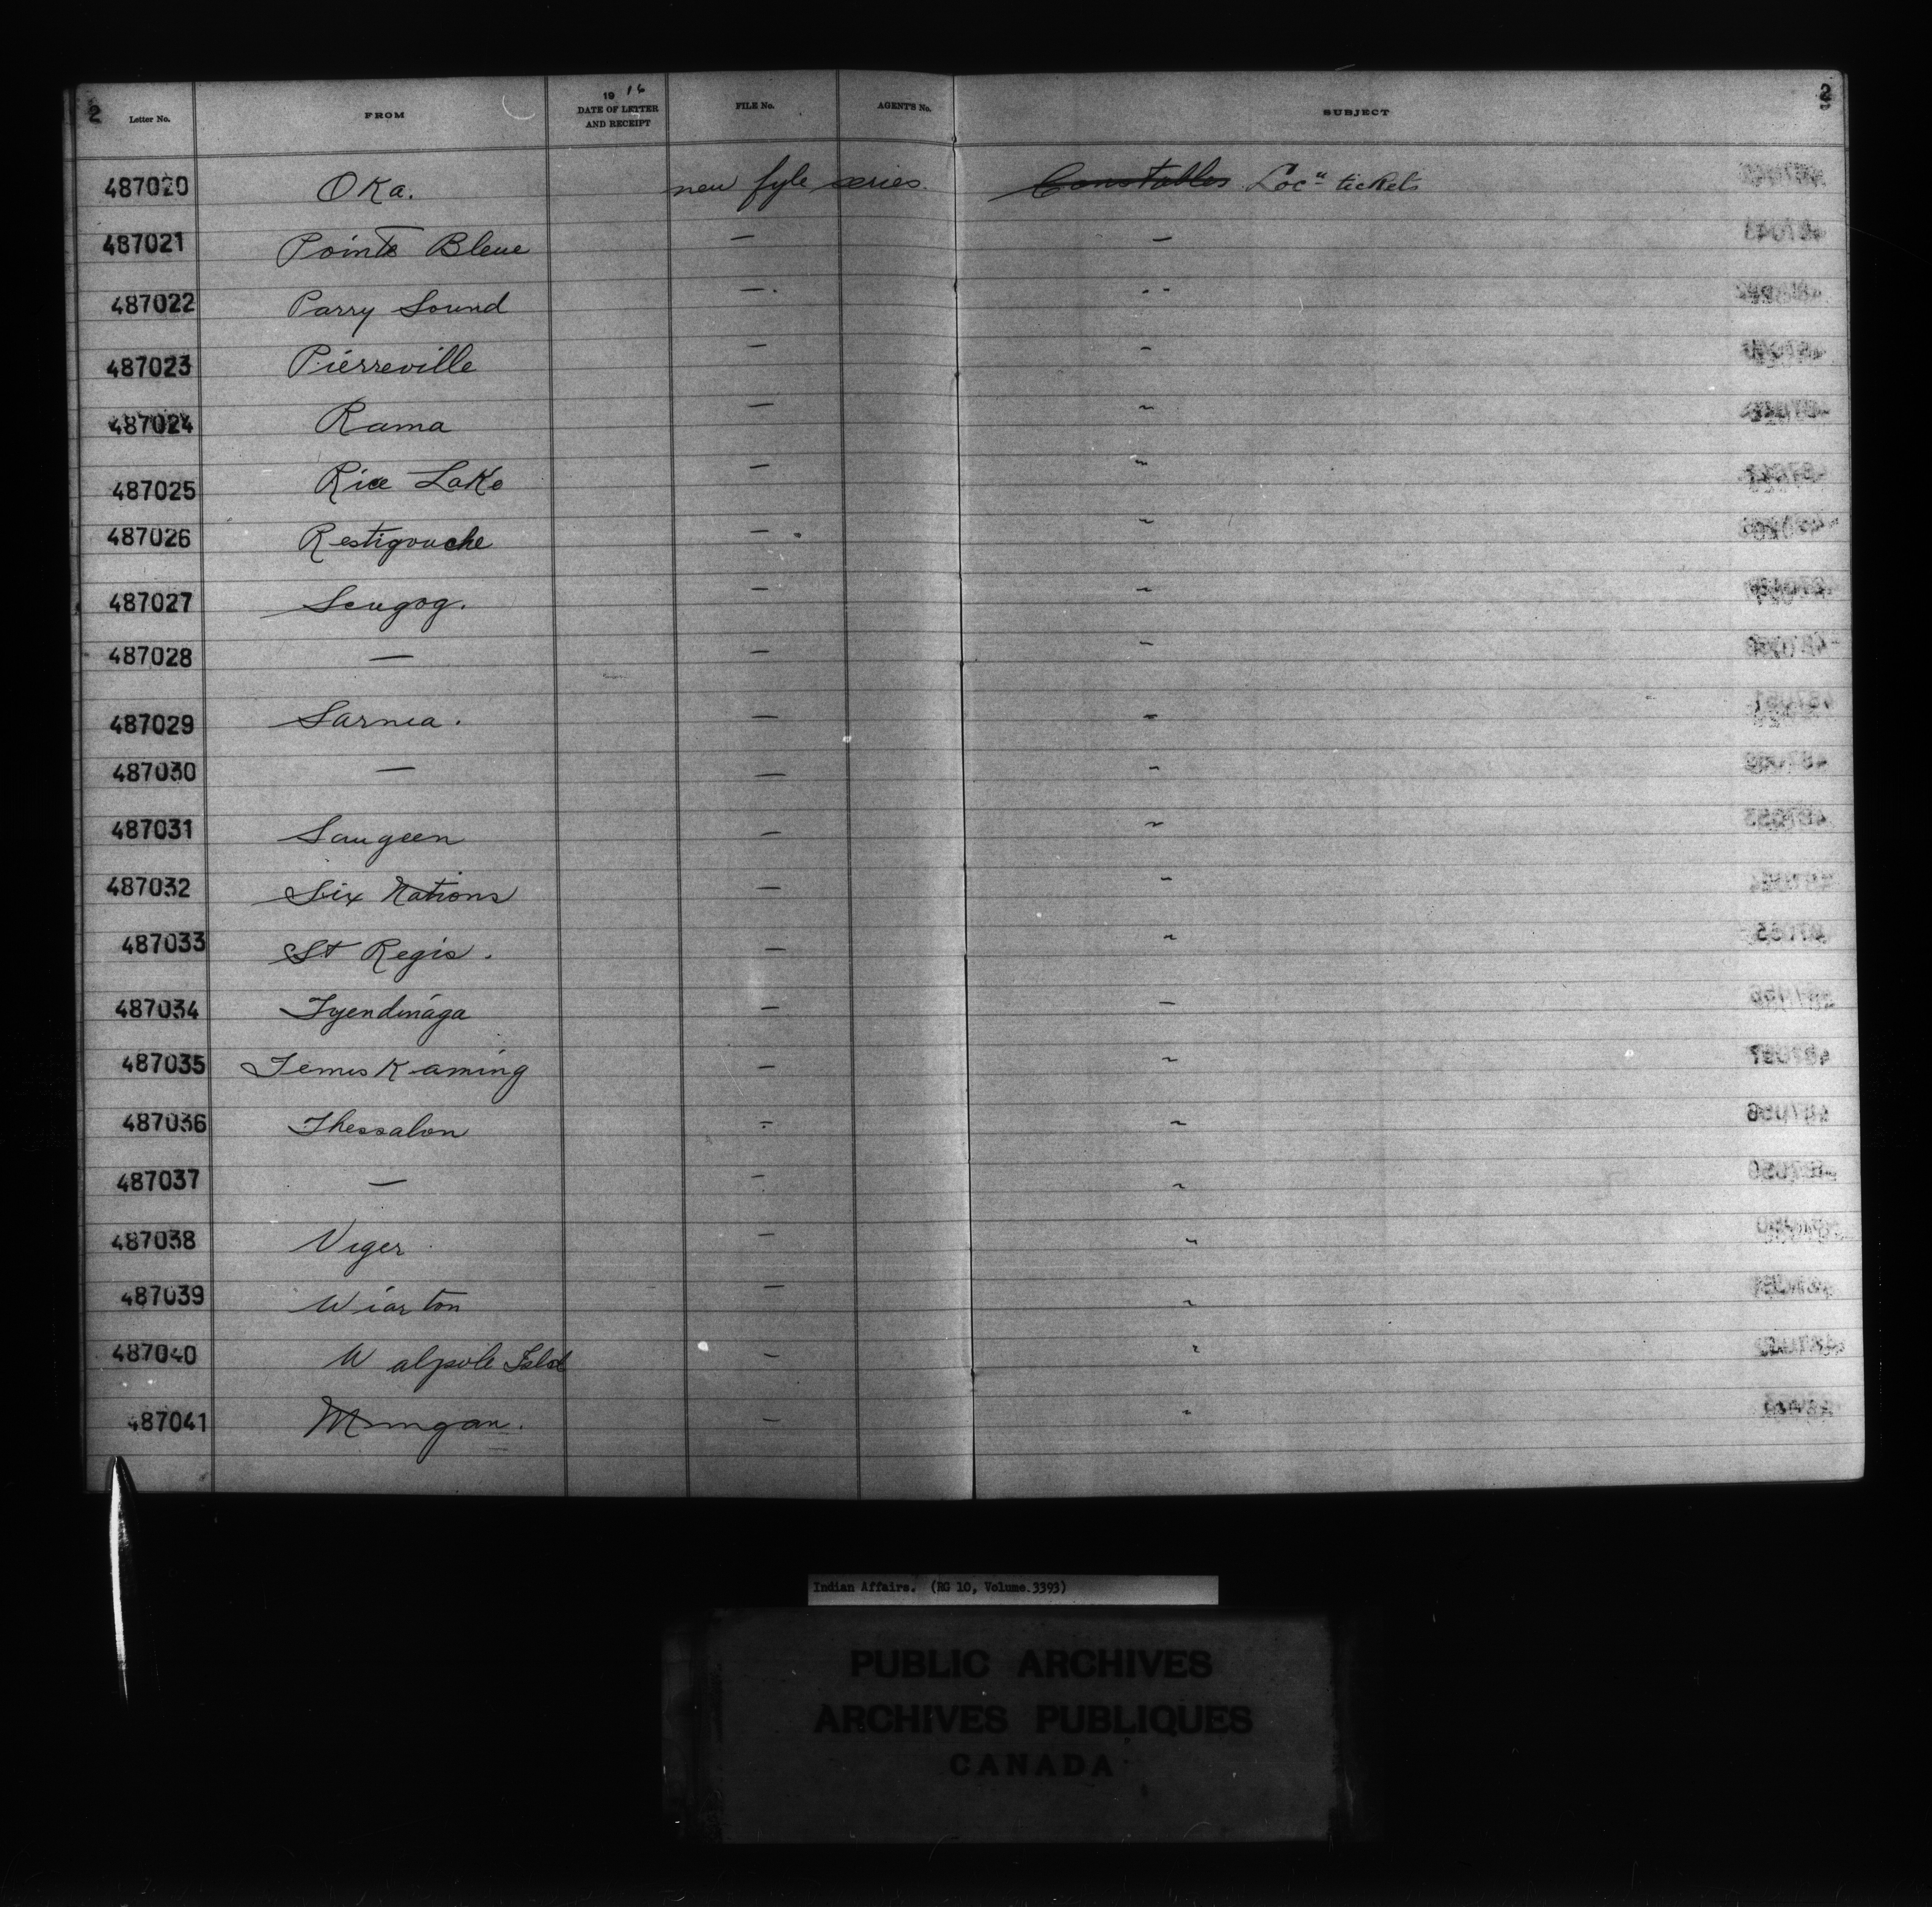 2 Letter No. FROM 1916 DATE OF LETTER AND RECEIPT FILE No. AGENT'S No. SUBJECT 2
487020 Oka. new fyle series. Constables Locn tickets
487021 Pointe Bleue — —
487022 Parry Sound — "
487023 Pierreville — "
487024 Rama — "
487025 Rice Lake — "
487026 Restigouche — "
487027 Scugog. — "
487028 — — "
487029 Sarnia. — "
487030 — — "
487031 Saugeen — "
487032 Six Nations — "
487033 St Regis. — "
487034 Tyendinaga — —
487035 Temiskaming — "
487036 Thessalon — "
487037 — — "
487038 Viger — "
487039 Wiarton — "
487040 Walpole Isld — "
487041 Mingan. — "
Indian Affairs. (RG 10, Volume.3393)
PUBLIC ARCHIVES
ARCHIVES PUBLIQUES
CANADA